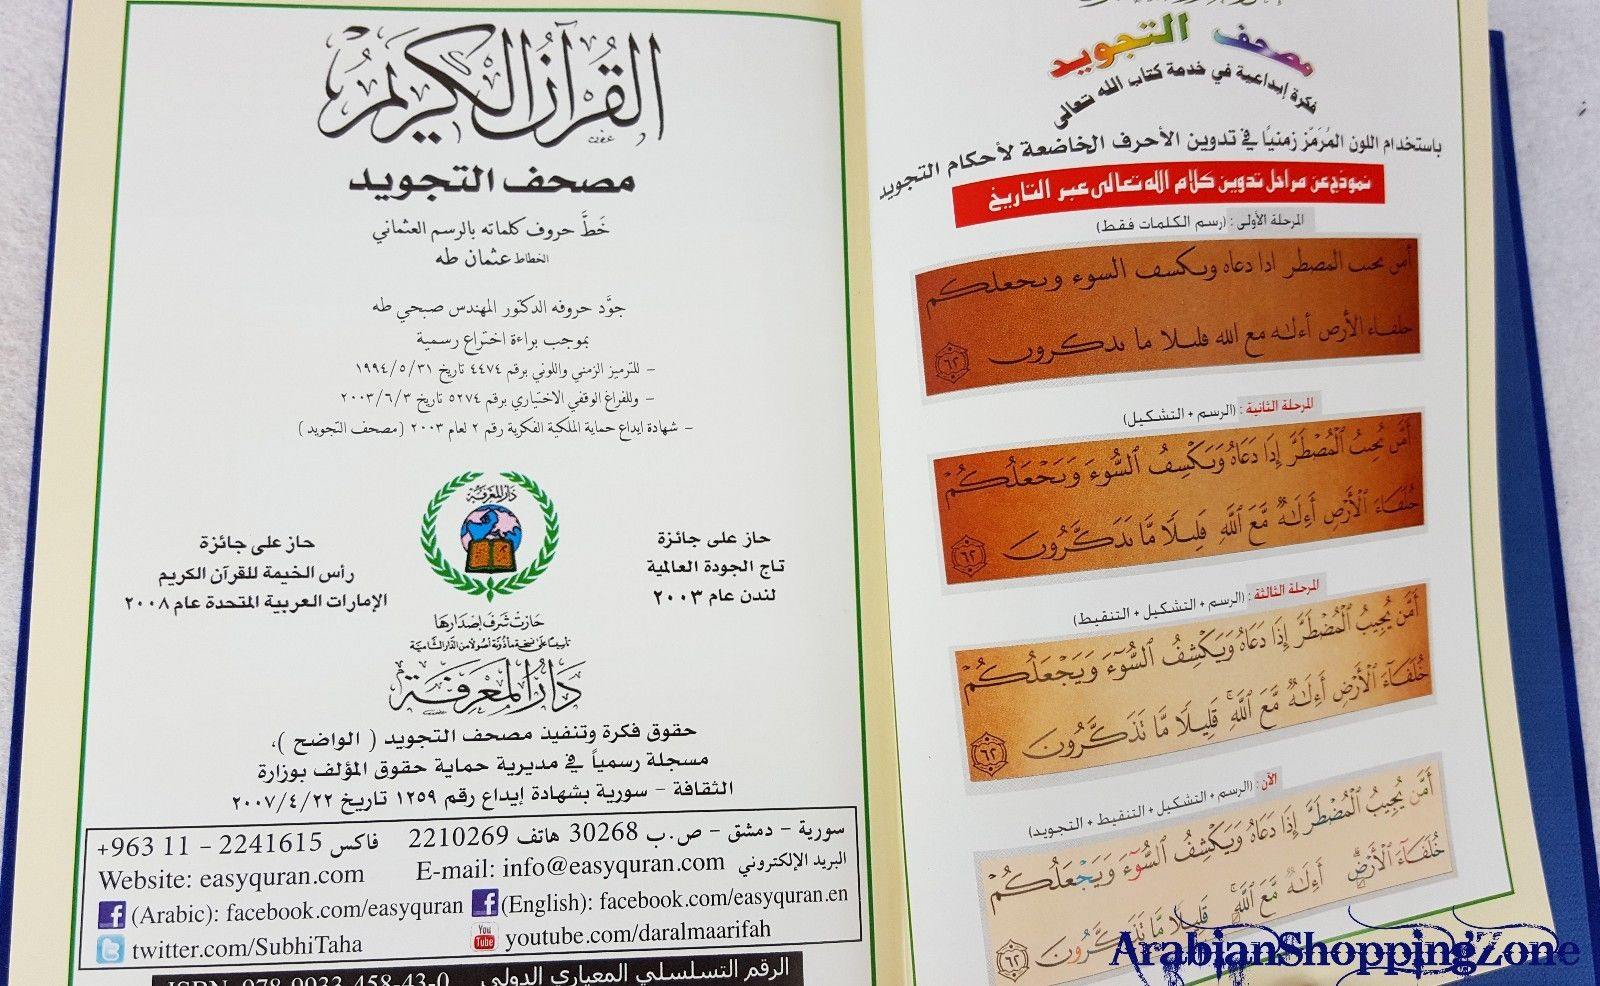 القرآن الكريم
مصحف التجويد
خَطَّ حروف كلماته بالرسم العثماني
الخطاط عثمان طه
جوَّد حروفه الدكتور المهندس صبحي طه
بموجب براءة اختراع رسمية
- للترميز الزمني واللوني برقم ٤٤٧٤ تاريخ ١٩٩٤/٥/٣١
- وللفراغ الوقفي الاختياري برقم ٥٢٧٤ تاريخ ٢٠٠٣/٦/٣
- شهادة إيداع حماية الملكية الفكرية رقم ٢ لعام ٢٠٠٣ (مصحف التجويد)
دار المعرفة
حاز على جائزة
تاج الجودة العالمية
لندن عام ٢٠٠٣
حاز على جائزة
رأس الخيمة للقرآن الكريم
الإمارات العربية المتحدة عام ٢٠٠٨
حازت شرف إصدارها
تأسيسًا على نسخة مأذونة أصولًا من الدار الشامية
دار المعرفة
حقوق فكرة وتنفيذ مصحف التجويد ( الواضح )،
مسجلة رسمياً في مديرية حماية حقوق المؤلف بوزارة
الثقافة - سورية بشهادة إيداع رقم ١٢٥٩ تاريخ ٢٠٠٧/٤/٢٢
سورية - دمشق - ص.ب 30268 هاتف 2210269 فاكس 2241615 - 11 963+
البريد الإلكتروني E-mail: info@easyquran.com Website: easyquran.com
f (Arabic): facebook.com/easyquran f (English): facebook.com/easyquran.en
twitter.com/SubhiTaha You Tube youtube.com/daralmaarifah
الرقم التسلسلي المعياري الدولي ISBN: 978-9933-458-43-0
مصحف التجويد
فكرة إبداعية في خدمة كتاب الله تعالى
باستخدام اللون المُرَمّز زمنيًا في تدوين الأحرف الخاضعة لأحكام التجويد
نموذج عن مراحل تدوين كلام الله تعالى عبر التاريخ
المرحلة الأولى : (رسم الكلمات فقط)
المرحلة الثانية : (الرسم + التشكيل)
المرحلة الثالثة : (الرسم + التشكيل + التنقيط)
أَمَّن يُجِيبُ ٱلْمُضْطَرَّ إِذَا دَعَاهُ وَيَكْشِفُ ٱلسُّوٓءَ وَيَجْعَلُكُمْ
خُلَفَآءَ ٱلْأَرْضِ أَءِلَٰهٌ مَّعَ ٱللَّهِ قَلِيلًا مَّا تَذَكَّرُونَ ٦٢
الآن : (الرسم + التشكيل + التنقيط + التجويد)
أَمَّن يُجِيبُ ٱلْمُضْطَرَّ إِذَا دَعَاهُ وَيَكْشِفُ ٱلسُّوٓءَ وَيَجْعَلُكُمْ
خُلَفَآءَ ٱلْأَرْضِ أَءِلَٰهٌ مَّعَ ٱللَّهِ قَلِيلًا مَّا تَذَكَّرُونَ ٦٢
ArabianShoppingZone